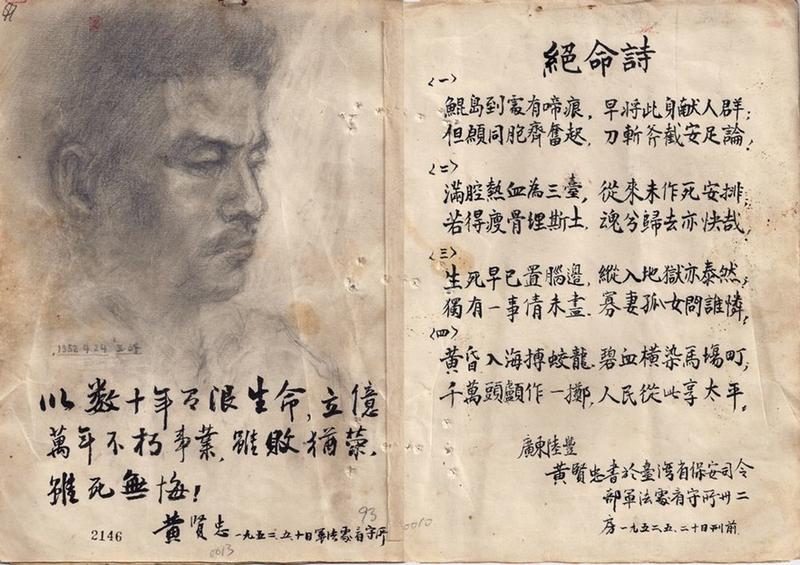 1952.4.24
以数十年有限生命，立億
萬年不朽事業，雖敗猶榮，
雖死無悔！
黃賢忠 一九五二、五、十日軍法處看守所
2146
0013
93
0010
絕命詩
〈一〉
鯤島到處有啼痕，早將此身献人群；
但願同胞齊奮起，刀斬斧截安足論。
〈二〉
滿腔熱血為三臺，從來未作死安排，
若得瘦骨埋斯土，魂兮歸去亦快哉。
〈三〉
生死早已置腦邊，縱入地獄亦泰然，
獨有一事情未盡，寡妻孤女問誰憐。
〈四〉
黃昏入海搏蛟龍，碧血橫染馬場町，
千萬頭顱作一擲，人民從此享太平。
廣東陸豐
黃賢忠書於臺灣省保安司令
部軍法處看守所卅二
房一九五二、五、二十日刑前